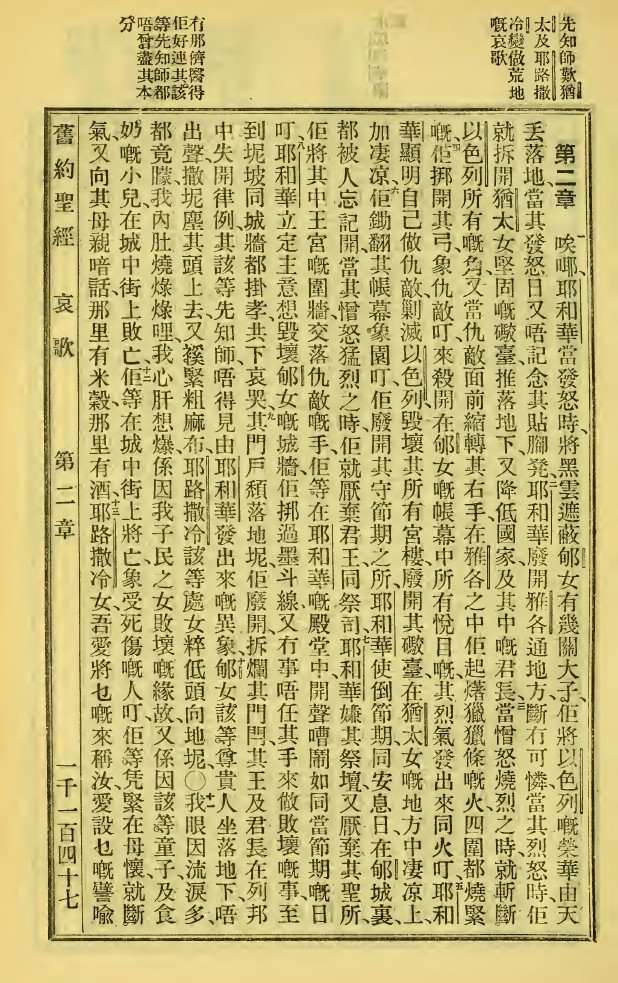 先知師歎猶
太及耶路撒
冷變做荒地
嘅哀歌
冇那儕醫得
佢好連其該
等先知師都
唔曾盡其本
分
第二章 一唉㖿耶和華當發怒時將黑雲遮蔽郇女有幾關大子佢將以色列嘅榮華由天
丟落地當其發怒日又唔記念其貼腳凳二耶和華廢開雅各通地方斷冇可憐當其烈怒時佢
就拆開猶太女堅固嘅礮臺推落地下又降低國家及其中嘅君長三當憎怒燒烈之時就斬斷
以色列所有嘅角又當仇敵面前縮轉其右手在雅各之中佢起㷫獵獵條嘅火四圍都燒緊
嘅四佢挷開其弓象仇敵叮來殺開在郇女嘅帳幕中所有悅目嘅其烈氣發出來同火叮五耶和
華顯明自己做仇敵剿滅以色列毀壞其所有宮樓廢開其礮臺在猶太女嘅地方中凄涼上
加凄涼六佢鋤翻其帳幕象園叮佢廢開其守節期之所耶和華使倒節期同安息日在郇城裏
都被人忘記開當其憎怒猛烈之時佢就厭棄君王同祭司七耶和華嫌其祭壇又厭棄其聖所
佢將其中王宮嘅圍牆交落仇敵嘅手佢等在耶和華嘅殿堂中開聲嘈鬧如同當節期嘅日
叮八耶和華立定主意想毀壞郇女嘅城牆佢挷過墨斗線又冇事唔任其手來做敗壞嘅事至
到坭坡同城牆都掛孝共下哀哭九其門戶頹落地坭佢廢開拆爛其門閂其王及君長在列邦
中失開律例其該等先知師唔得見由耶和華發出來嘅異象十郇女該等尊貴人坐落地下唔
出聲撒坭塵其頭上去又䙅緊粗麻布耶路撒冷該等處女粹低頭向地坭〇十一我眼因流淚多
都竟矇我內肚燒㷫㷫哩我心肝想爆係因我子民之女敗壞嘅緣故又係因該等童子及食
奶嘅小兒在城中街上敗亡十二佢等在城中街上將亡象受死傷嘅人叮佢等凭緊在母懷就斷
氣又向其母親喑話那里有米穀那里有酒十三耶路撒冷女吾愛將乜嘅來稱汝愛設乜嘅譬喻
舊約聖經 哀歌 第二章 一千一百四十七